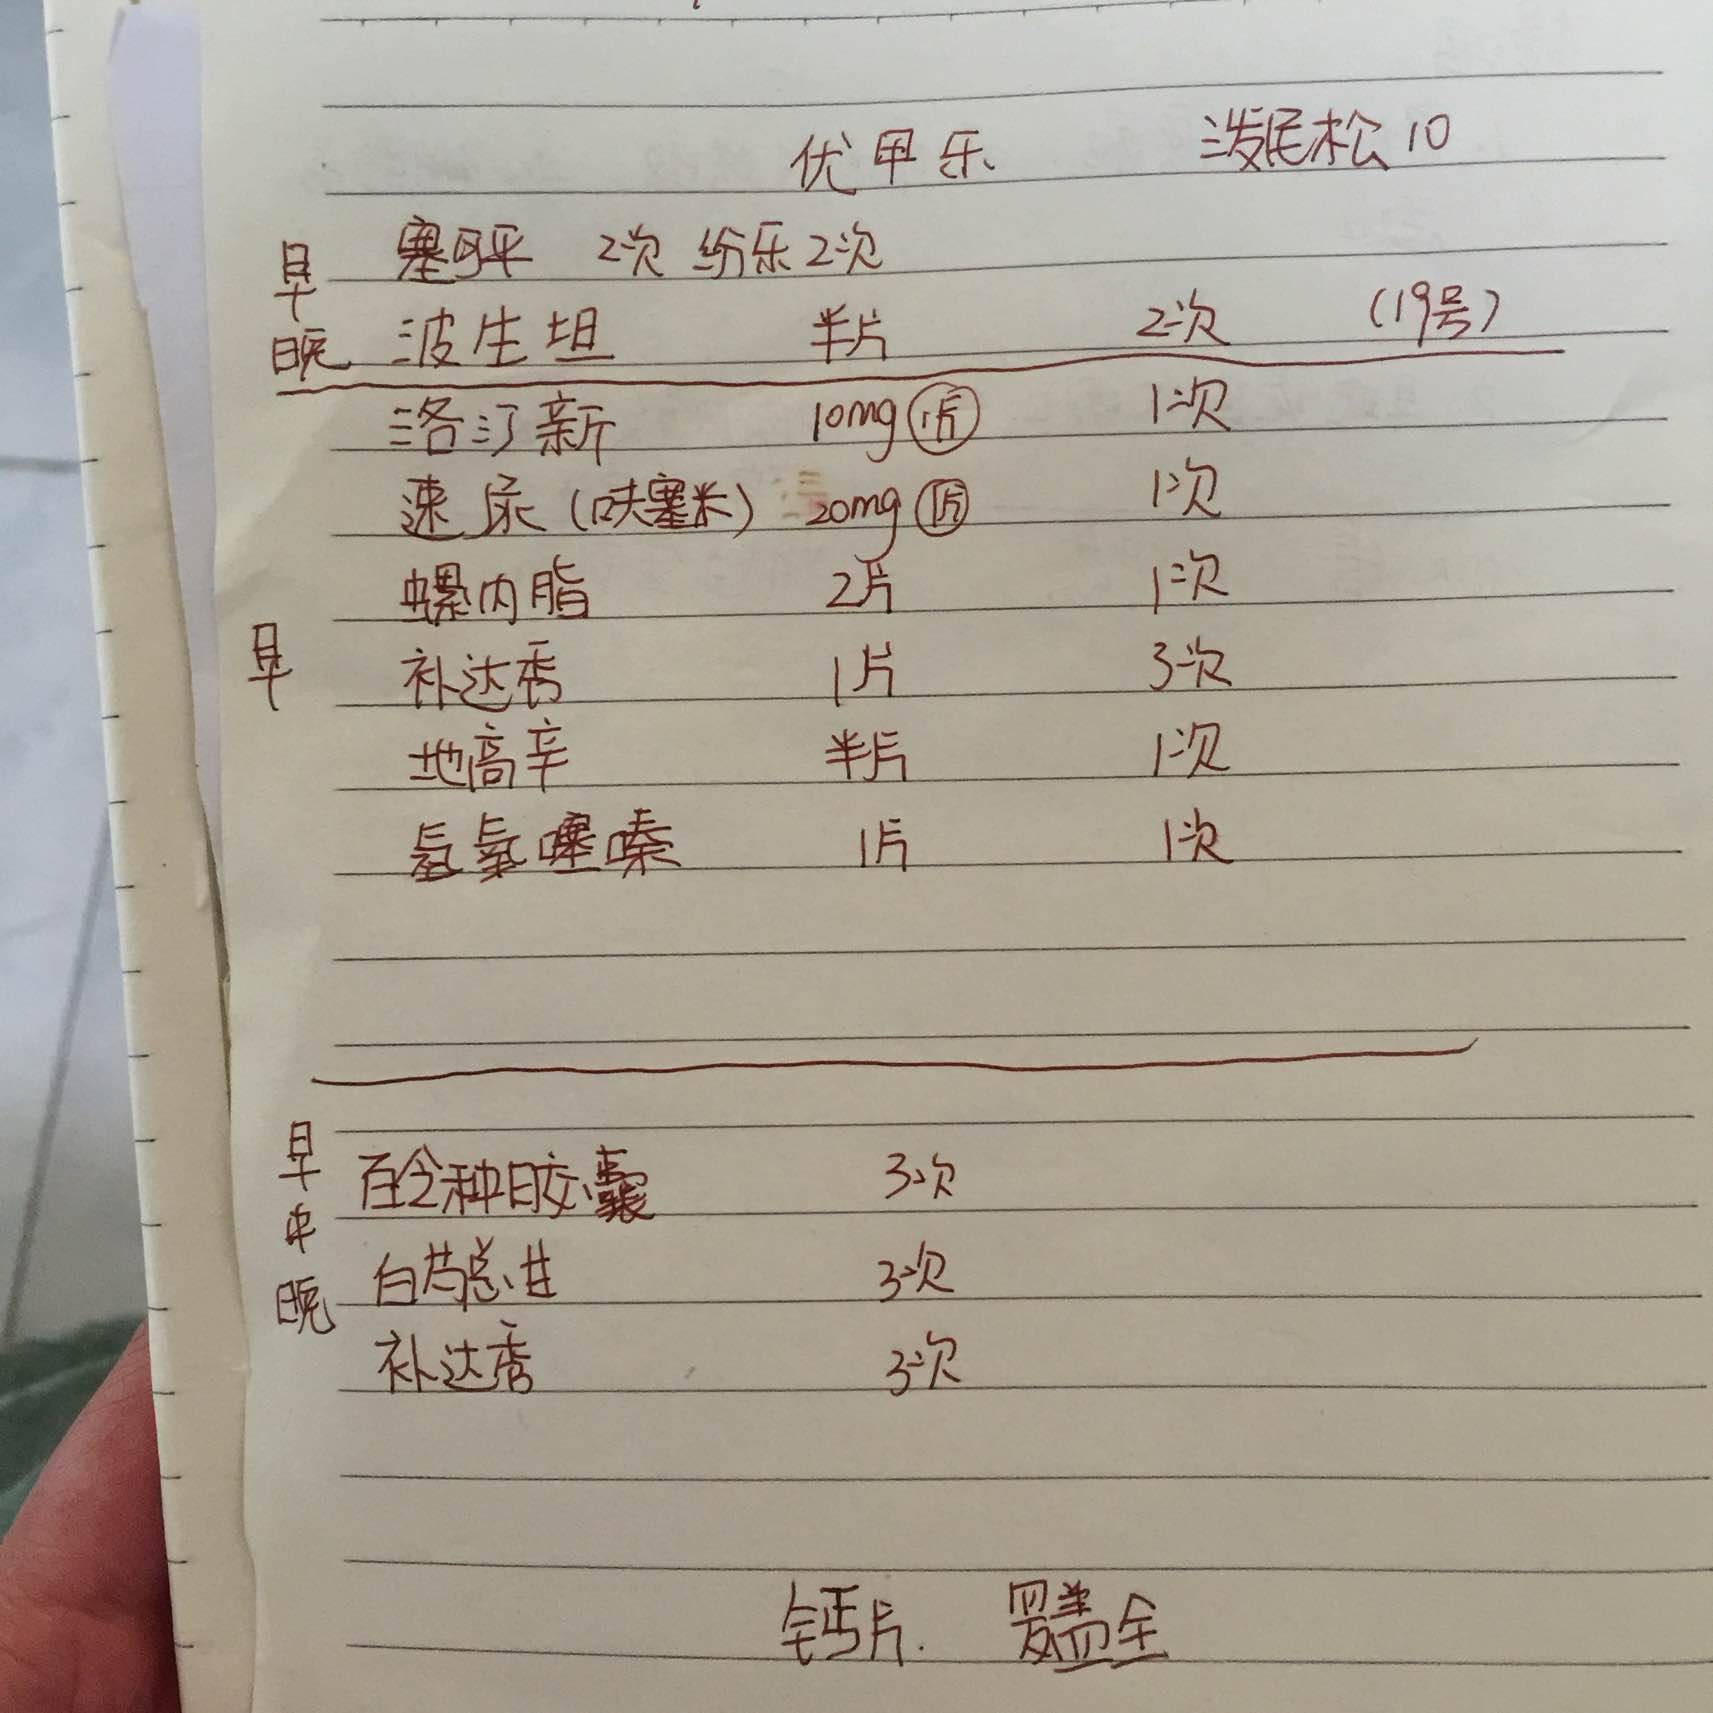 优甲乐 泼尼松 10
早 塞可平 2次 纷乐 2次
晚 波生坦 半片 2次 (19号)
洛汀新 10mg 1片 1次
速尿(呋塞米) 20mg 1片 1次
螺内脂 2片 1次
早 补达秀 1片 3次
地高辛 半片 1次
氢氯噻嗪 1片 1次
早 百令种胶囊 3次
中
白芍总甘 3次
晚
补达秀 3次
钙片. 罗盖全